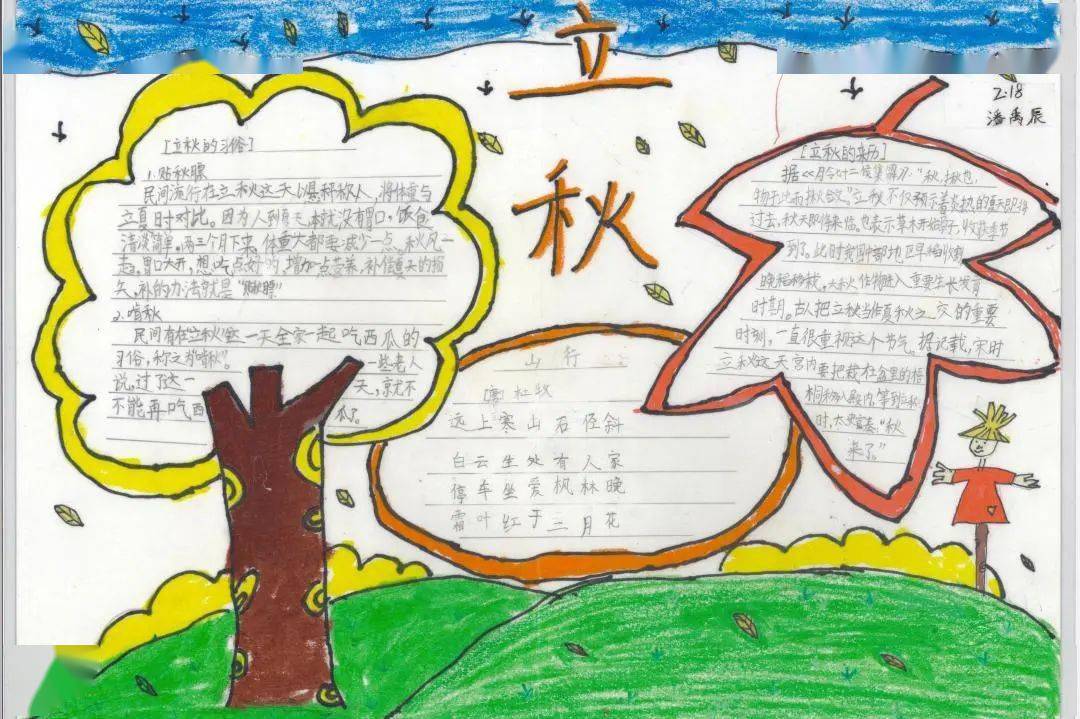 立秋
2.18
潘禹辰
[立秋的习俗]
1.贴秋膘
民间流行在立秋这天以悬秤称人，将体重与
立夏时对比。因为人到夏天，本就没有胃口，饭食
清淡简单，两三个月下来，体重大都要减少一点。秋风一
起，胃口大开，想吃点好的，增加一点营养，补偿夏天的损
失，补的办法就是"贴秋膘"
2.啃秋
民间有在立秋这一天全家一起吃西瓜的
习俗，称之为"啃秋"。一些老人
说，过了这一天，就不
不能再吃西瓜了。
山行
唐 杜牧
远上寒山石径斜
白云生处有人家
停车坐爱枫林晚
霜叶红于二月花
[立秋的来历]
据《月令七十二候集解》："秋，揪也，
物于此而揪敛也"。立秋不仅预示着炎热的夏天即将
过去，秋天即将来临。也表示草木开始结果，收获季节
到了。此时我国中部地区早稻收割，
晚稻移栽，大秋作物进入重要生长发育
时期。古人把立秋当作夏秋之交的重要
时刻，一直很重视这个节气。据记载，宋时
立秋这天宫内要把栽在盆里的梧
桐移入殿内，等到立秋
时，太史官奏："秋
来了。"